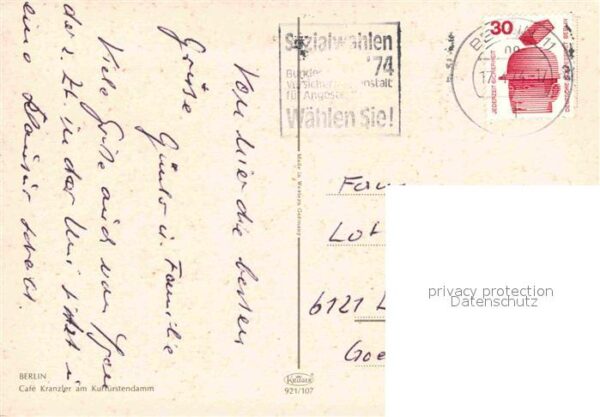 Sozialwahlen
'74
Bundes
versicherungsanstalt
für Angeste
Wählen Sie!
30
BERLIN
JEDERZEIT SICHERHEIT
DEUTSCHE BUNDESPOST
BERLIN 11
Von hier die besten
Grüße
Günter u. Familie
Viele Grüße auch von
der z. Zt. in der Uni sitzt u.
eine Klausur schreibt.
Made in Western Germany
Fam
Lot
6121
Goe
privacy protection
Datenschutz
BERLIN
Café Kranzler am Kurfürstendamm
Krüger
921/107